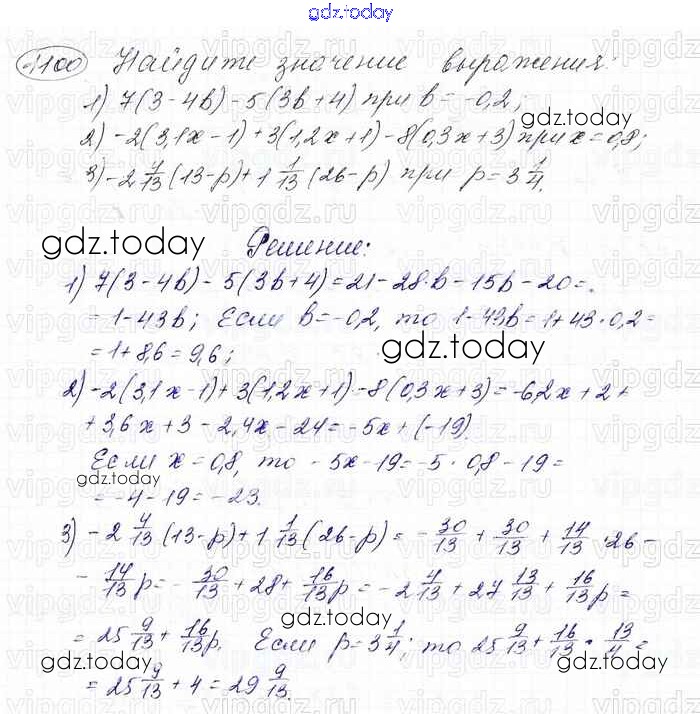 gdz.today
1100 Найдите значение выражения:
1) 7(3-4b)-5(3b+4) при b=-0,2;
2) -2(3,1x-1)+3(1,2x+1)-8(0,3x+3) при x=0,8;
3) -2 4/13 (13-p)+1 1/13 (26-p) при p=3 1/4.
gdz.today
gdz.today
Решение:
1) 7(3-4b)-5(3b+4)=21-28·b-15b-20=
=1-43b; Если b=-0,2, то 1-43b=1+43·0,2=
=1+8,6=9,6;
gdz.today
2) -2(3,1x-1)+3(1,2x+1)-8(0,3x+3)=-6,2x+2+
+3,6x+3-2,4x-24=-5x+(-19)
Если x=0,8, то -5x-19=-5·0,8-19=
=-4-19=-23.
gdz.today
3) -2 4/13 (13-p)+1 1/13 (26-p)=-30/13+30/13+14/13·26-
-14/13p=-30/13+28+16/13p=-2 4/13+27 13/13+16/13p=
gdz.today
gdz.today
=25 9/13+16/13p. Если p=3 1/4, то 25 9/13+16/13·13/4=
gdz.today
gdz.today
=25 9/13+4=29 9/13.